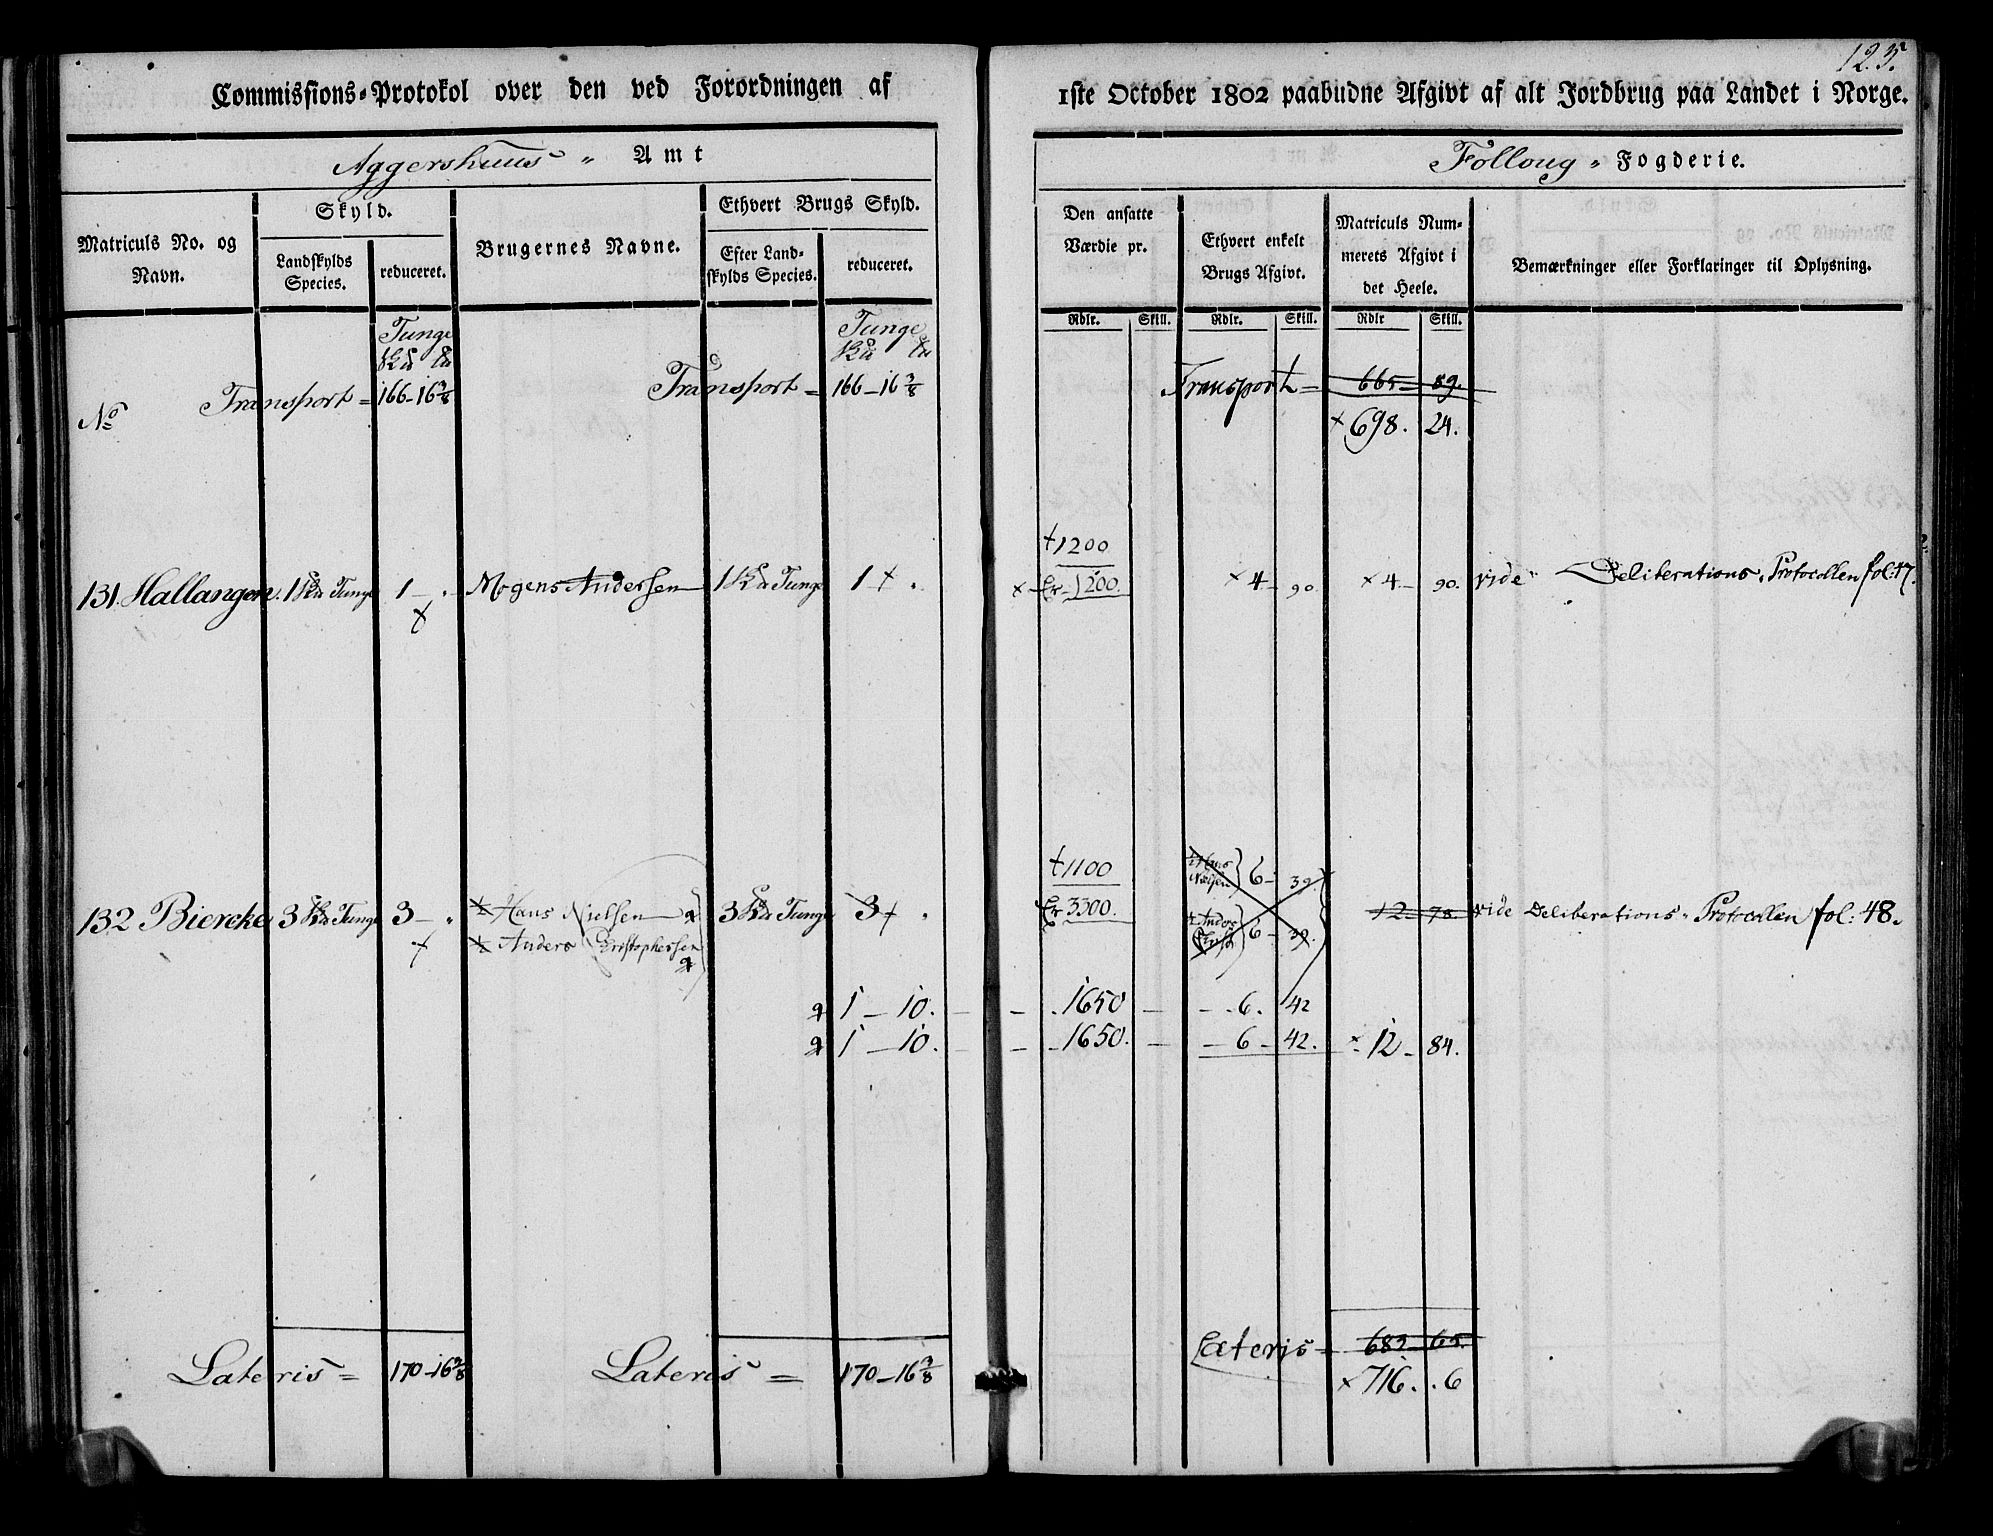 123.
Commissions-Protokol over den ved Forordningen af 1ste October 1802 paabudne Afgivt af alt Jordbrug paa Landet i Norge.
Aggershuus " Amt
Follong " Fogderie.
Matriculs No. og Navn.
Skyld.
Landskylds Species.
reduceret.
Brugernes Navne.
Ethvert Brugs Skyld.
Efter Landskylds Species.
reduceret.
Den ansatte Værdie pr.
Ethvert enkelt Brugs Afgivt.
Matriculs Nummerets Afgivt i det Heele.
Bemærkninger eller Forklaringer til Oplysning.
Rdlr. Skill. Rdlr. Skill. Rdlr Skill.
Tunge Tunge
No Transport = 166-16 3/8 Transport = 166-16 3/8 Transport = 665-89.
× 698. 24.
+1200
131. Hallangen. 1 Tunge 1 - " Mogens Andersen 1 Tunge 1 + " × Er 1200. × 4 - 90 × 4 - 90. vide Deliberations Protocollen fol: 47.
+1100 Hans Nielsen 6 - 39.
132 Biercke 3 Tunge 3 - " Hans Nielsen 3 Tunge 3 + " Er 3300. 12-78. vide Deliberations Protocollen fol: 48.
Anders Christophersen Anders 6 - 39.
1 - 10. - 1650 - 6. 42
1 - 10. - 1650. - 6 - 42. × 12 - 84.
Lateris = 170-16 3/8 Lateris = 170-16 3/8 Lateris = 682-65.
× 716. . 6